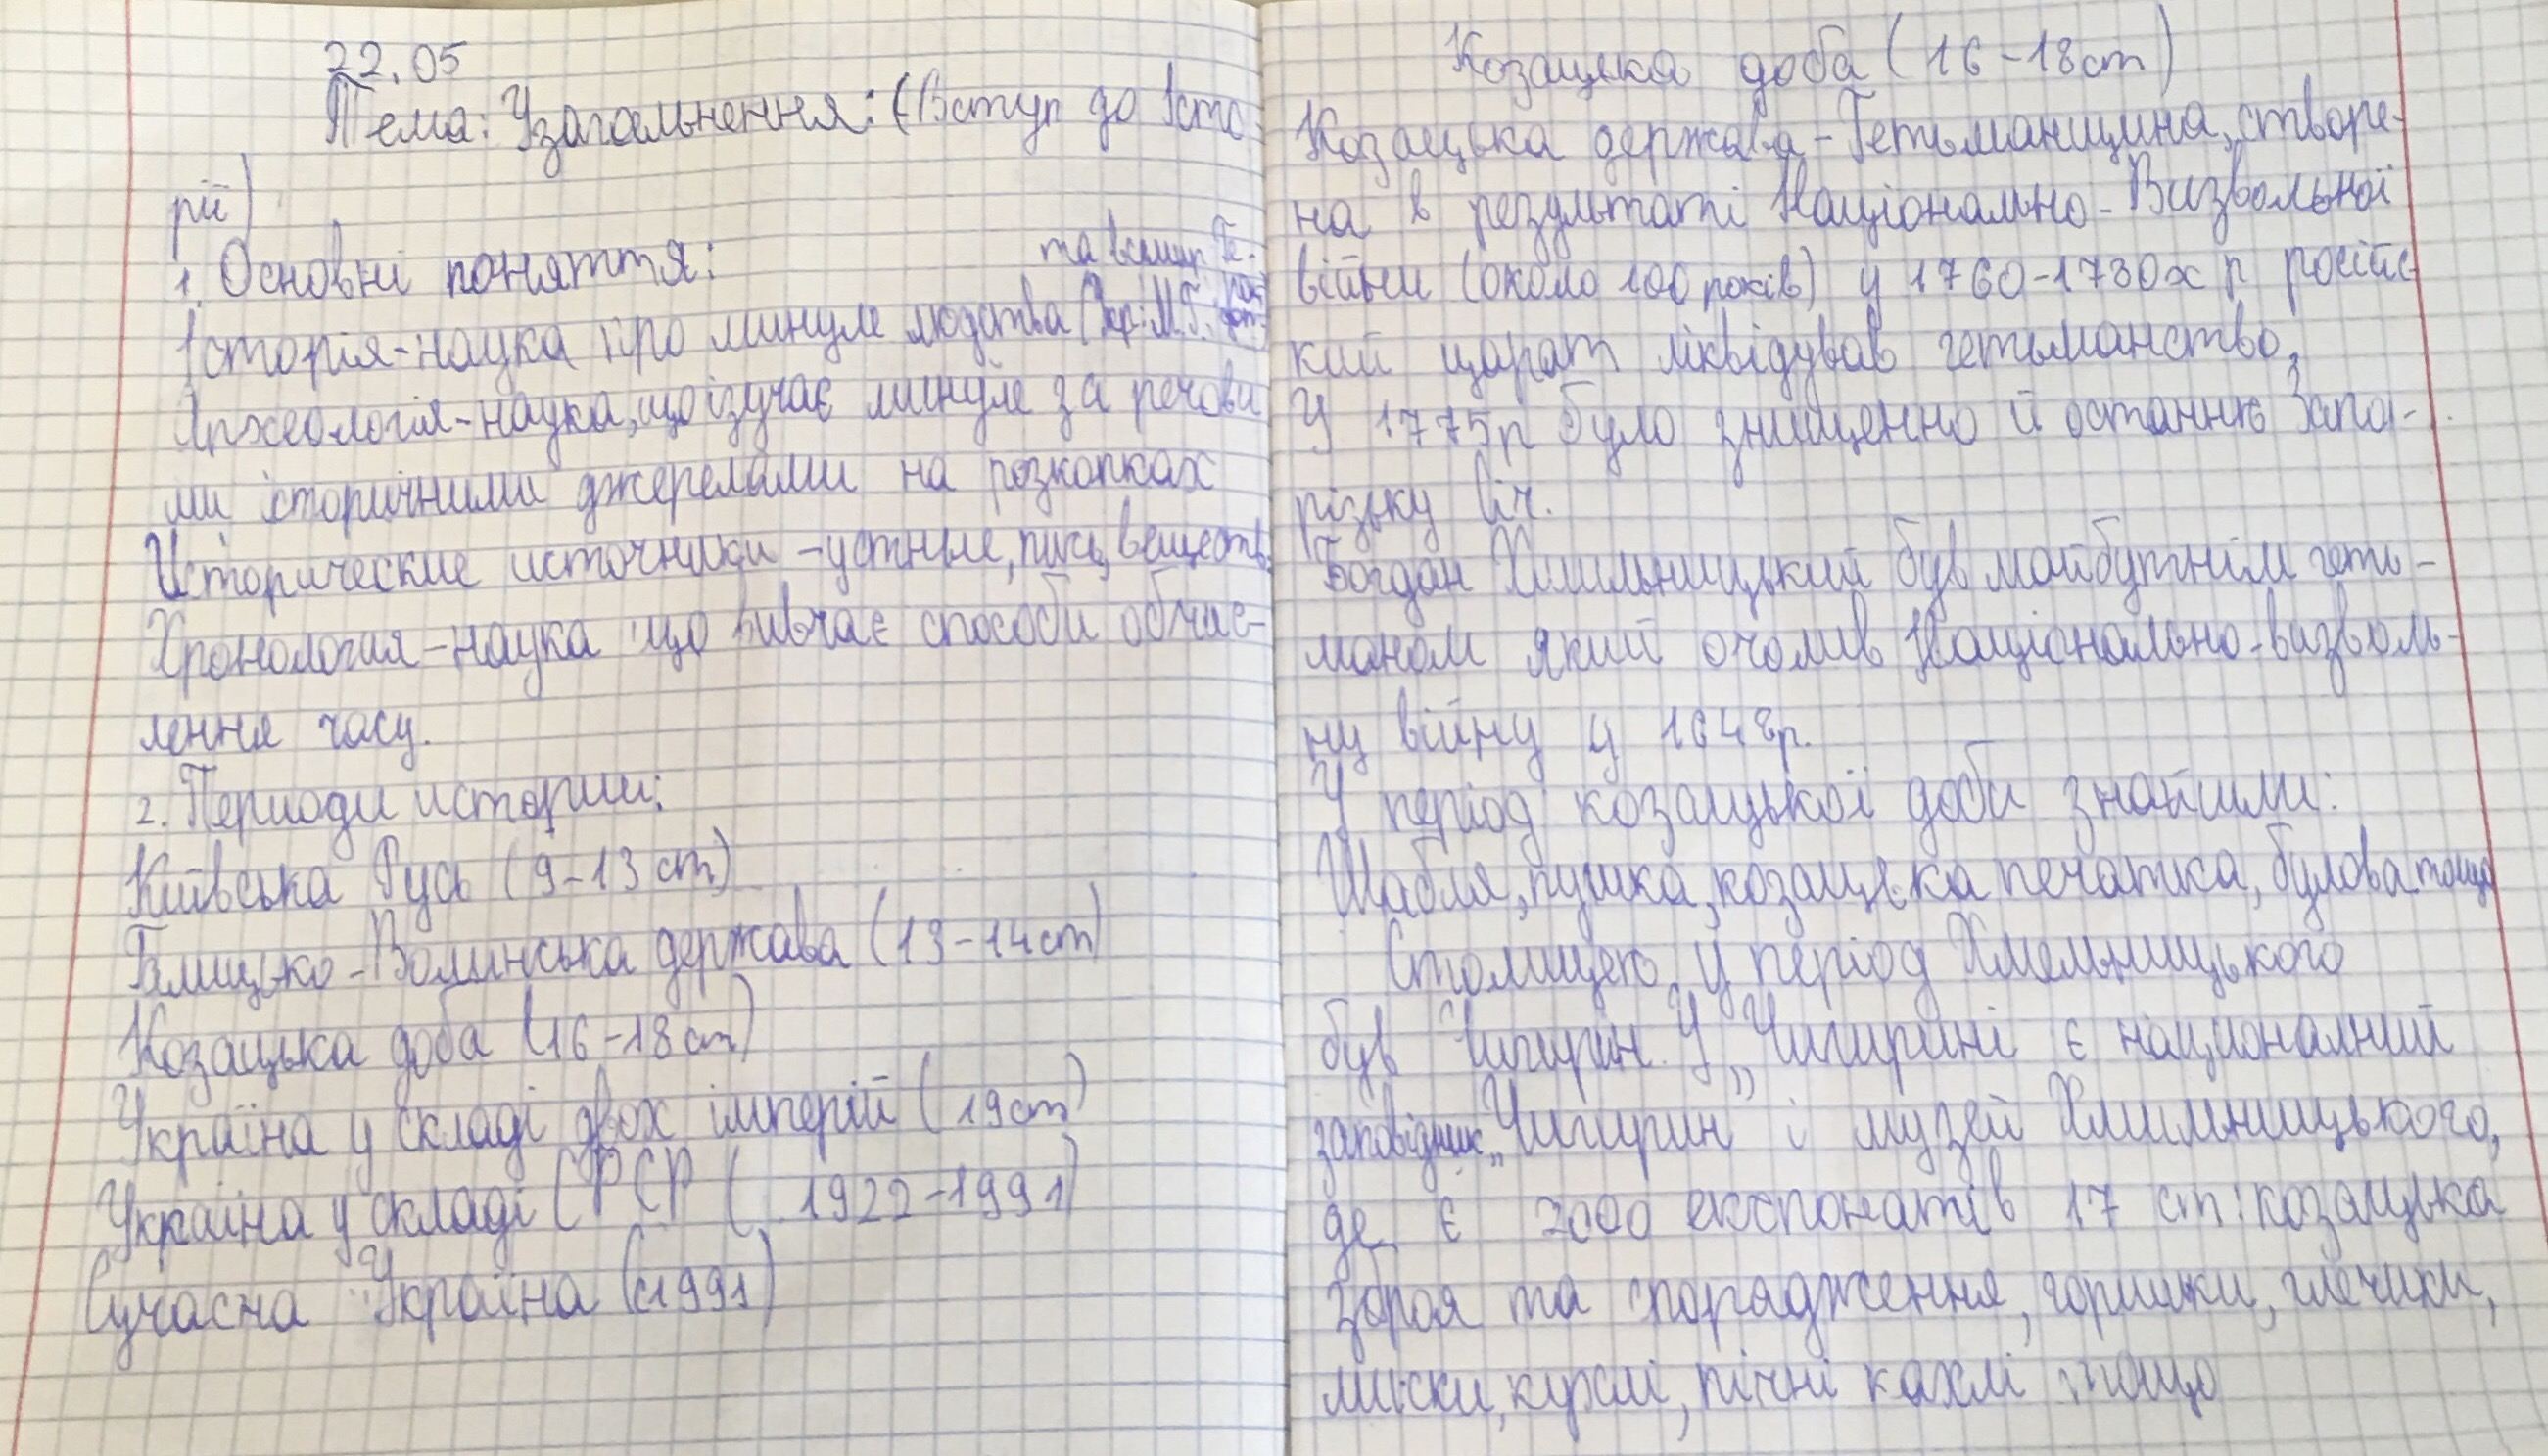 22.05
Тема: Узагальнення: (Вступ до Істо-
рії)
1. Основні поняття:
та всмир Ге.
Історія-наука про минуле людства (Укр: М.Г.
Археологія-наука, що ізучає минуле за речови
ми історічними джерелами на розкопках
Исторические источники - устные, писц, веществ.
Хронология-наука що вивчає способи обчис-
лення часу.
2. Периоди истории:
Київська Русь (9-13 ст)
Галицько-Волинська держава (13-14 ст)
Козацька доба (16-18 ст)
Україна у складі двох імперій (19 ст)
Україна у складі СРСР ( 1922-1991)
Сучасна Україна (с1991)
Козацька доба (16-18 ст)
Козацька держава-Гетьманщина, створе-
на в результаті Національно-Визвольної
війни (около 100 років) у 1760-1780х р російс-
кий царат ліквідував гетьманство,
У 1775р було знищенно й останню Запо-
різьку Січ.
Богдан Хмильницький був майбутнім геть-
маном який очолив Національно-визволь-
ну війну у 1648р.
У період козацької доби знайшли:
Шабля, пушка, козацька печатка, булова тощо
Столицею у період Хмельницького
був Чигирин. У „Чигирині є національний
заповідник „Чигирин" і музей Хмильницького,
де є 2000 експонатів 17 ст: козацька
зброя та спорядження, горшики, глечики,
миски, кухлі, пічні кахлі тощо